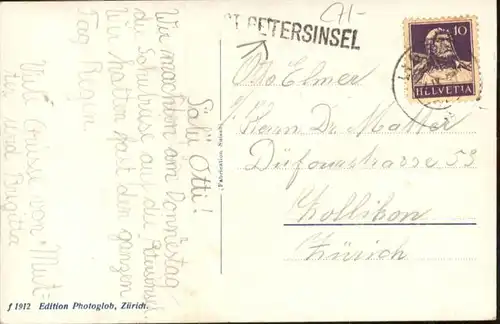 Salü Otti!
Wir machten am Donnestag
die Schulreise auf die Petersinsel.
Wir hatten fast den ganzen
Tag Regen
Viel Grüsse von Mut=
ter und Birgitta
ST. PETERSINSEL
10
HELVETIA
Otto Elmer
Herrn Dr. Matter
Dufourstrasse 53
Zollikon
Zürich
f 1912 Edition Photoglob, Zürich.